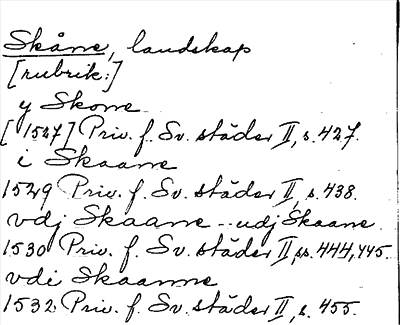 Skåne, landskap
[rubrik:]
y Skone
[1527] Priv. f. Sv. städer II, s. 427.
i Skaane
1529 Priv. f. Sv. städer II, s. 438.
vdj Skaane - udj Skaane
1530 Priv. f. Sv. städer II, ss. 444, 445.
vdi Skaanne
1532 Priv. f. Sv. städer II, s. 455.